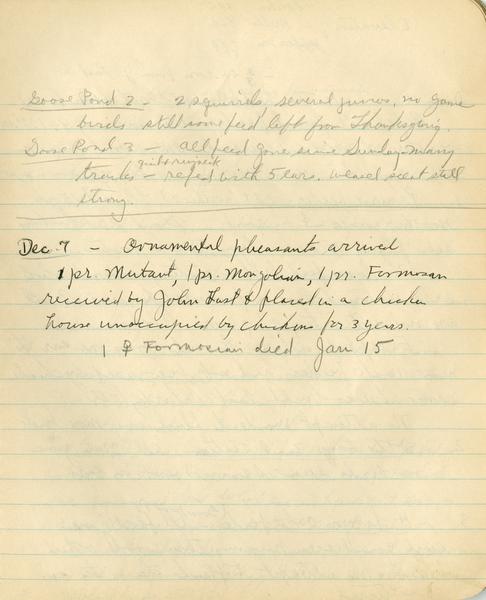 Goose Pond 2 - 2 squirrels, several juncos, no game
birds still some feed left from Thanksgiving.
Goose Pond 3 - all feed gone since Sunday - many
quite ringneck
tracks - refed with 5 ears. weasel scent still
strong.
Dec 7 - Ornamental pheasants arrived
1 pr. Mutant, 1 pr. Mongolian, 1 pr. Formosan
received by John & placed in a chicken
house unoccupied by chickens for 3 years.
1 ♀ Formosan died Jan 15